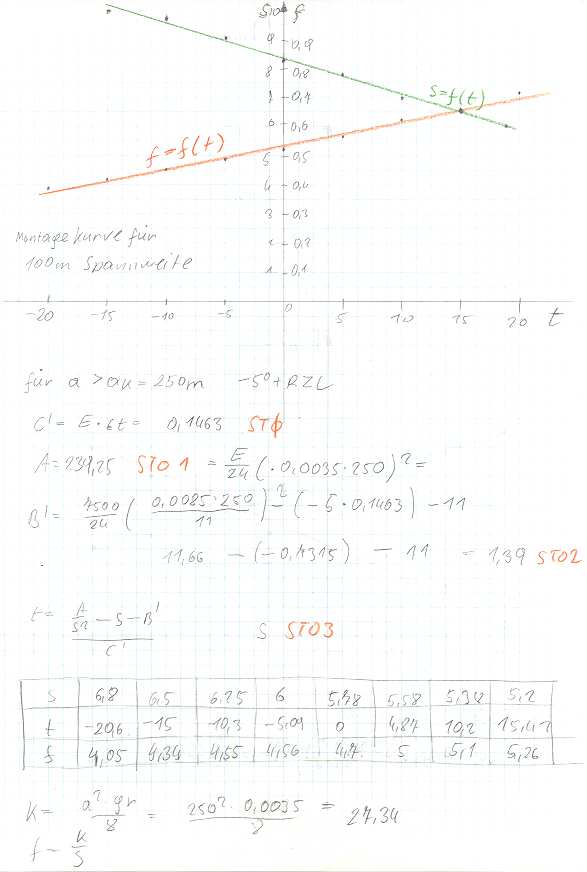 S f
9 0,9
8 0,8
7 0,7
6 0,6
5 0,5
4 0,4
3 0,3
0,2
1 0,1
s=f(t)
f=f(t)
Montagekurve für
100m Spannweite
-20 -15 -10 -5 0 5 10 15 20 t
für a > ak = 250m -5° + RZL
C' = E · εt = 0,1463 STφ
A = 239,25 STO 1 = E/24 (·0,0035·250)² =
B' = 7500/24 (0,0085·250/11)² - (-5·0,1463) - 11
11,66 - (-0,7315) - 11 = 1,39 STO2
t = (A/S² - S - B')/C' S STO3
S 6,8 6,5 6,25 6 5,78 5,58 5,38 5,2
t -20,6 -15 -10,3 -5,09 0 4,87 10,2 15,47
f 4,05 4,34 4,55 4,56 4,7 5 5,1 5,26
K = a²·gr/8 = 250²·0,0035/8 = 27,34
f - K/S